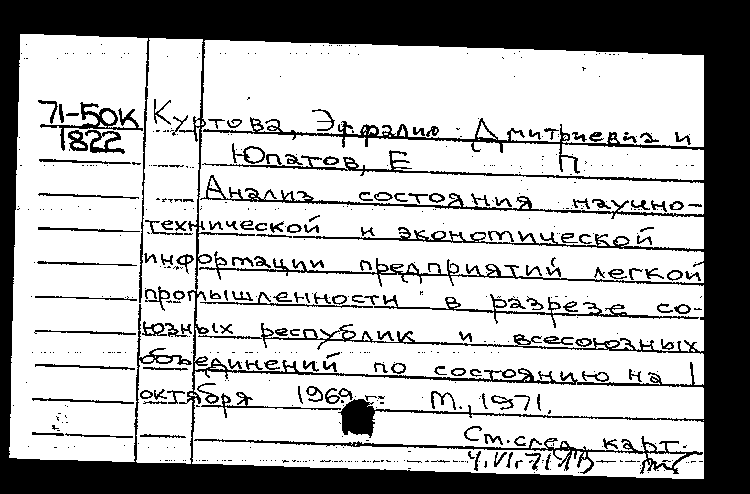 71-50К
1822
Куртова, Эффалия Дмитриевна и
Юпатов, Е П
Анализ состояния научно-
технической и экономической
информации предприятий легкой
промышленности в разрезе со-
юзных республик и всесоюзных
объединений по состоянию на 1
октября 1969 г. М., 1971.
См. след. карт.
4.VI.71